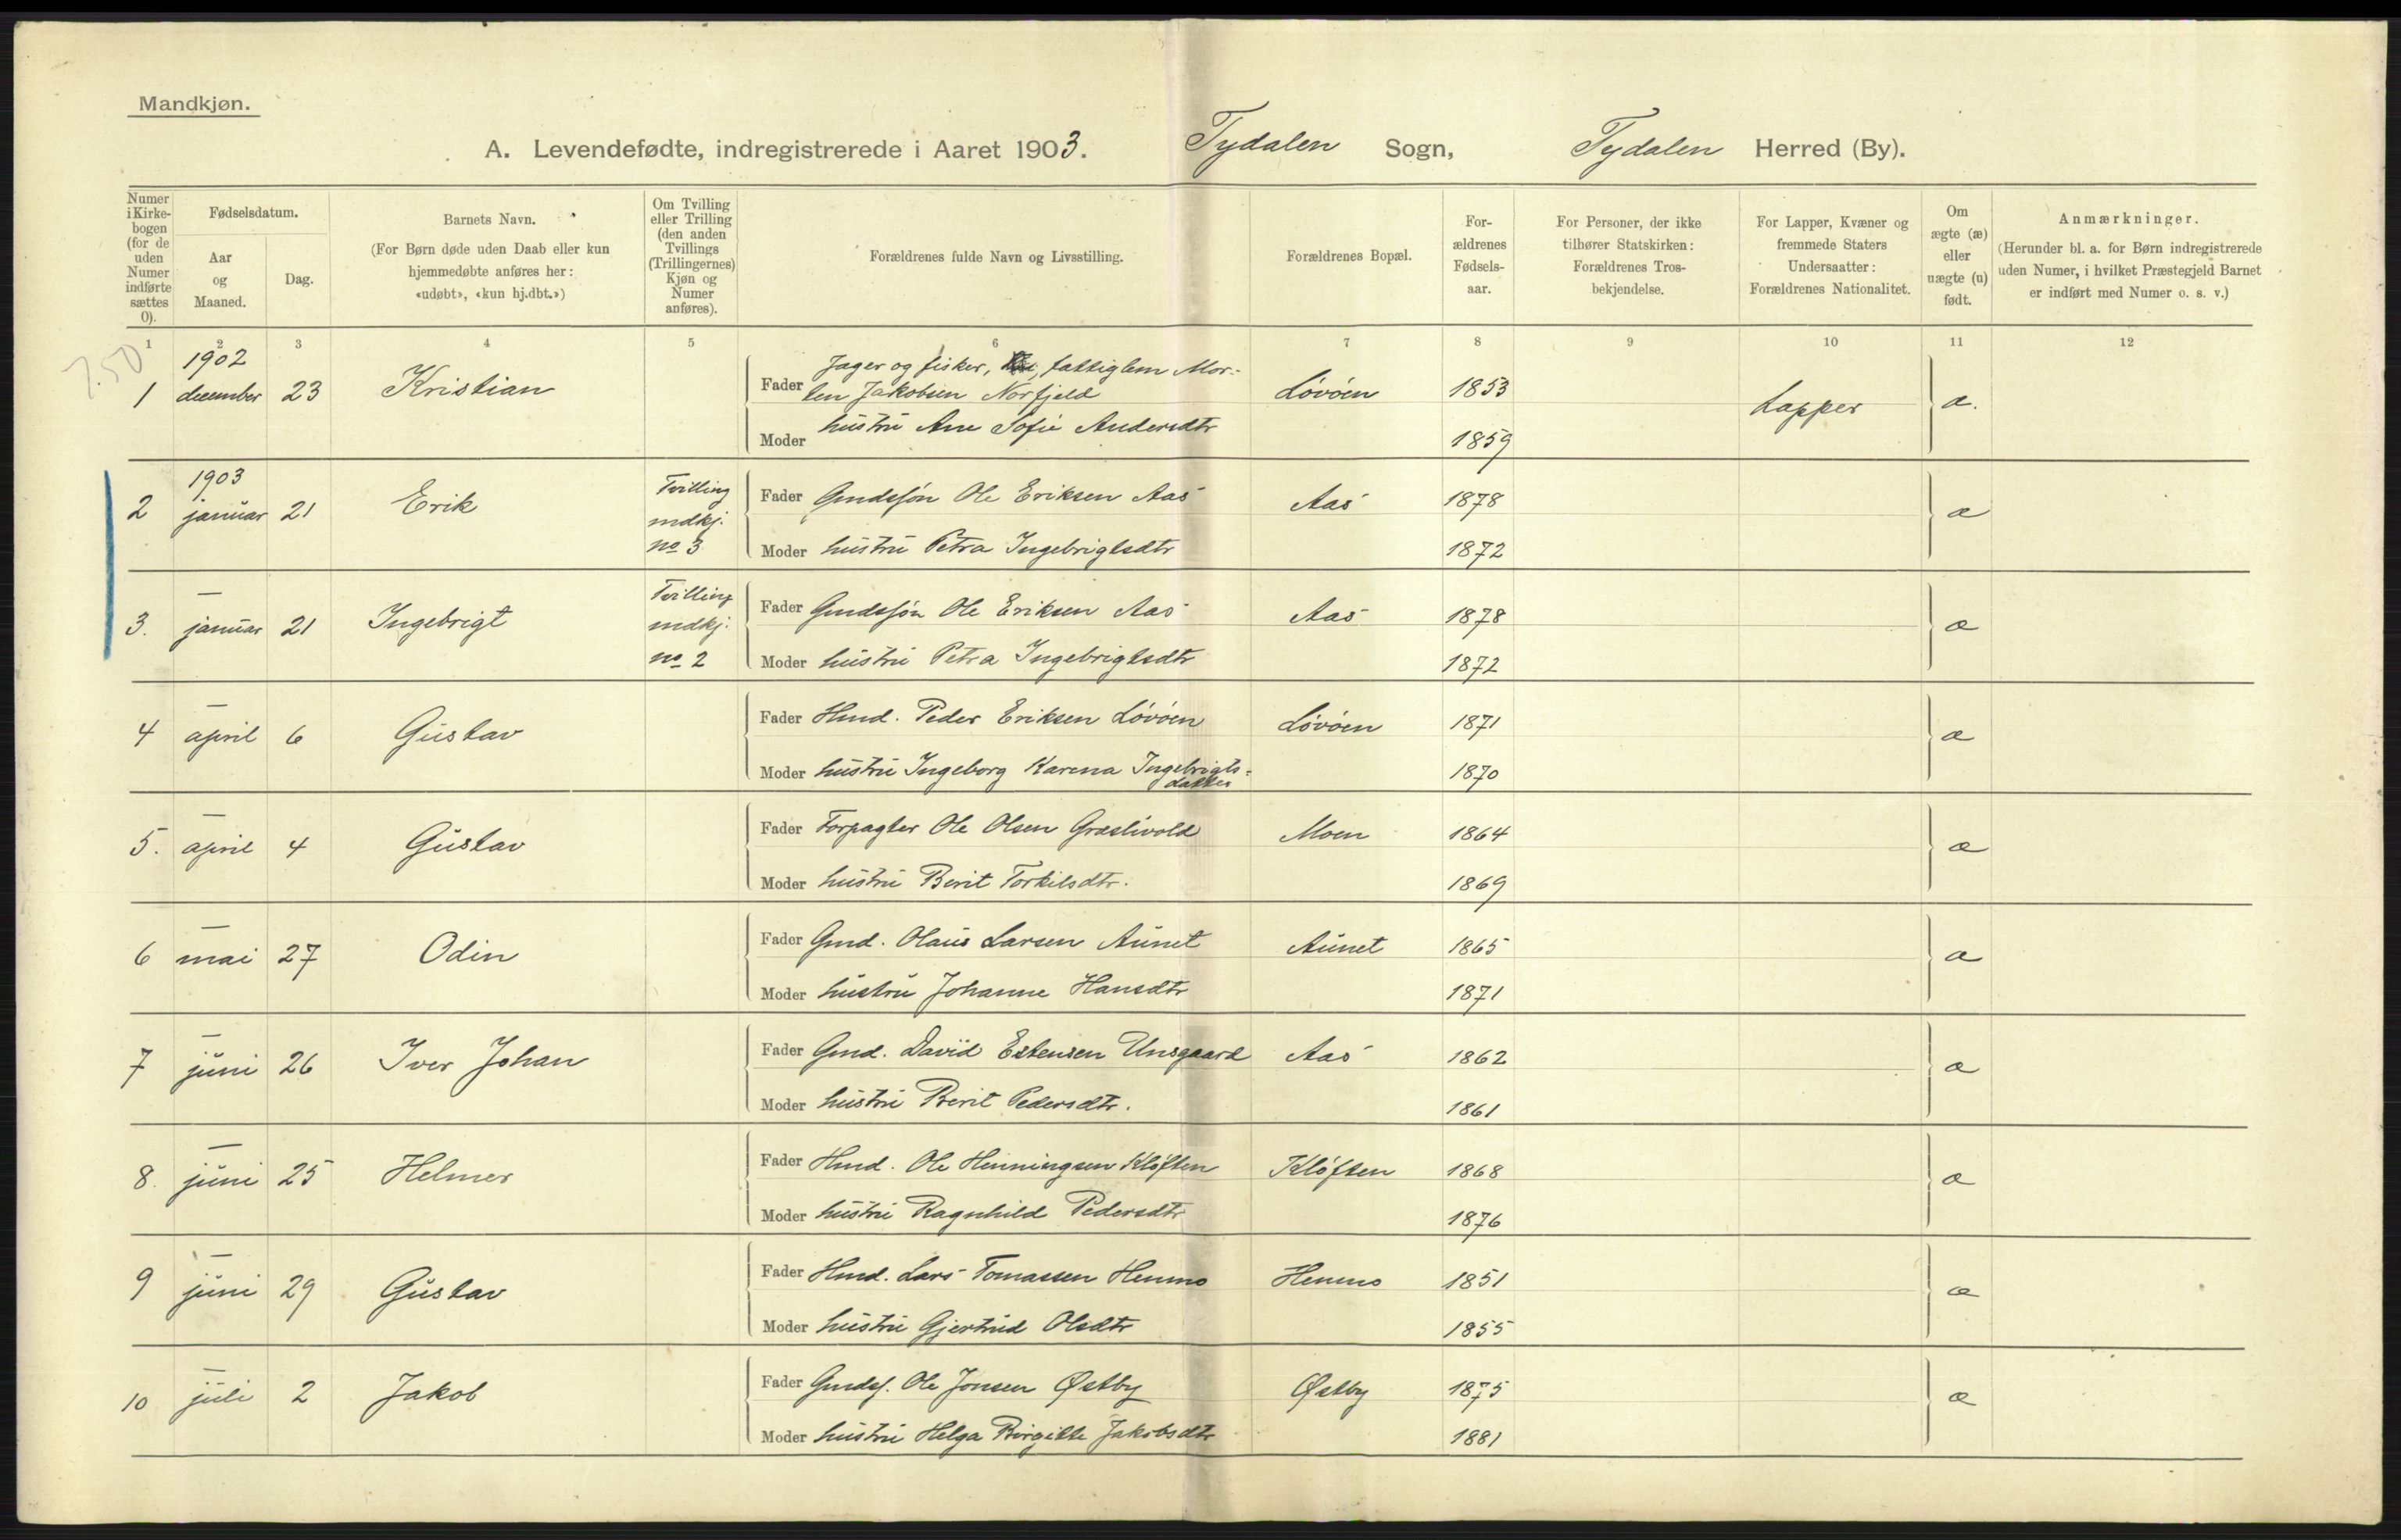 Mandkjøn.
A. Levendefødte, indregistrerede i Aaret 1903. Tydalen Sogn, Tydalen Herred (By).
Numer i Kirke- bogen (for de uden Numer indførte sættes 0).
Fødselsdatum.
Aar og Maaned.
Dag.
Barnets Navn.
(For Børn døde uden Daab eller kun hjemmedøbte anføres her: «udøbt», «kun hj.dbt.»)
Om Tvilling eller Trilling (den anden Tvillings (Trillingernes) Kjøn og Numer anføres).
Forældrenes fulde Navn og Livsstilling.
Forældrenes Bopæl.
For- ældrenes Fødsels- aar.
For Personer, der ikke tilhører Statskirken: Forældrenes Tros- bekjendelse.
For Lapper, Kvæner og fremmede Staters Undersaatter: Forældrenes Nationalitet.
Om ægte (æ) eller uægte (u) født.
Anmærkninger.
(Herunder bl. a. for Børn indregistrerede uden Numer, i hvilket Præstegjeld Barnet er indført med Numer o. s. v.)
1 2 3 4 5 6 7 8 9 10 11 12
7.50
1902
1 december 23 Kristian Fader Jager og fisker, fattiglem Mor-
ten Jakobsen Norfjeld Løvøen 1853 Lapper æ.
Moder hustru Ane Sofie Andersdtr 1859
1903
2 januar 21 Erik Tvilling mdkj. no 3 Fader Gmdssøn Ole Eriksen Aas Aas 1878 æ
Moder hustru Petra Ingebrigtsdtr 1872
—
3. januar 21 Ingebrigt Tvilling mdkj. no 2 Fader Gmdssøn Ole Eriksen Aas Aas 1878 æ
Moder hustru Petra Ingebrigtsdtr 1872
—
4 april 6 Gustav Fader Hmd. Peder Eriksen Løvøen Løvøen 1871 æ
Moder hustru Ingeborg Karena Ingebrigts-
datter 1870
—
5. april 4 Gustav Fader Forpagter Ole Olsen Græslivold Moen 1864 æ
Moder hustru Berit Torkilsdtr. 1869
—
6 mai 27 Odin Fader Gmd. Olaus Larsen Aunet Aunet 1865 æ
Moder hustru Johanne Hansdtr 1871
—
7 juni 26 Iver Johan Fader Gmd. David Estensen Unsgaard Aas 1862 æ
Moder hustru Berit Pedersdtr. 1861
—
8. juni 25 Helmer Fader Hmd. Ole Henningsen Kløften Kløften 1868 æ
Moder hustru Ragnhild Pedersdtr 1876
—
9 juni 29 Gustav Fader Hmd. Lars Tomassen Henmo Henmo 1851 æ
Moder hustru Gjertrud Olsdtr 1855
—
10 juli 2 Jakob Fader Gmdss. Ole Jonsen Østby Østby 1875 æ
Moder hustru Helga Birgitte Jakobsdtr 1881